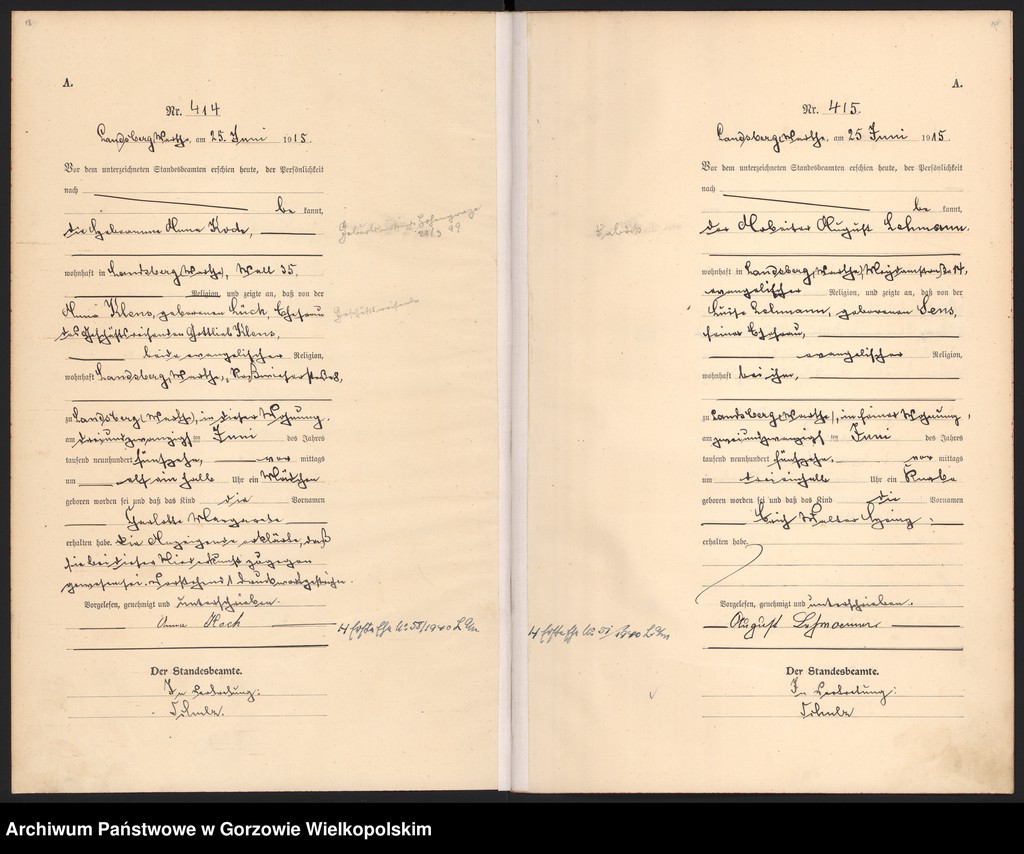 A.
Nr. 414
Landsberg, Warthe, am 25. Juni 1915.
Vor dem unterzeichneten Standesbeamten erschien heute, der Persönlichkeit
nach
be kannt,
die Hebamme Anna
wohnhaft in Landsberg, Warthe, Wall 35.
Religion, und zeigte an, daß von der
Klens, geborenen Lück, Ehefrau
des Geschäftsreisenden Gottlieb Klens,
beide evangelischer Religion,
wohnhaft Landsberg, Warthe,
zu Landsberg (Warthe), in dieser Wohnung,
am dreiundzwanzigsten Juni des Jahres
tausend neunhundert fünfzehn, vor mittags
um elf ein halb Uhr ein Mädchen
geboren worden sei und daß das Kind die Vornamen
Charlotte Margarete
erhalten habe. Die Anzeigende erklärte, daß
sie bei dieser Niederkunft zugegen
gewesen sei. Vorstehend 1 Druckwort gestrichen.
Vorgelesen, genehmigt und unterschrieben.
Anna
Der Standesbeamte.
In Vertretung:
Geschäftsreisende
1940
A.
Nr. 415.
Landsberg, Warthe, am 25 Juni 1915.
Vor dem unterzeichneten Standesbeamten erschien heute, der Persönlichkeit
nach
be kannt,
der Arbeiter August Lehmann,
wohnhaft in Landsberg, Warthe, 14,
evangelischer Religion, und zeigte an, daß von der
Luise Lehmann, geborenen Sens,
seiner Ehefrau,
evangelischer Religion,
wohnhaft bei ihm,
zu Landsberg (Warthe), in seiner Wohnung,
am zweiundzwanzigsten Juni des Jahres
tausend neunhundert fünfzehn, vor mittags
um drei einhalb Uhr ein Knabe
geboren worden sei und daß das Kind die Vornamen
Erich Walter
erhalten habe.
Vorgelesen, genehmigt und unterschrieben.
August Lehmann
Der Standesbeamte.
In Vertretung:
1940
Archiwum Państwowe w Gorzowie Wielkopolskim